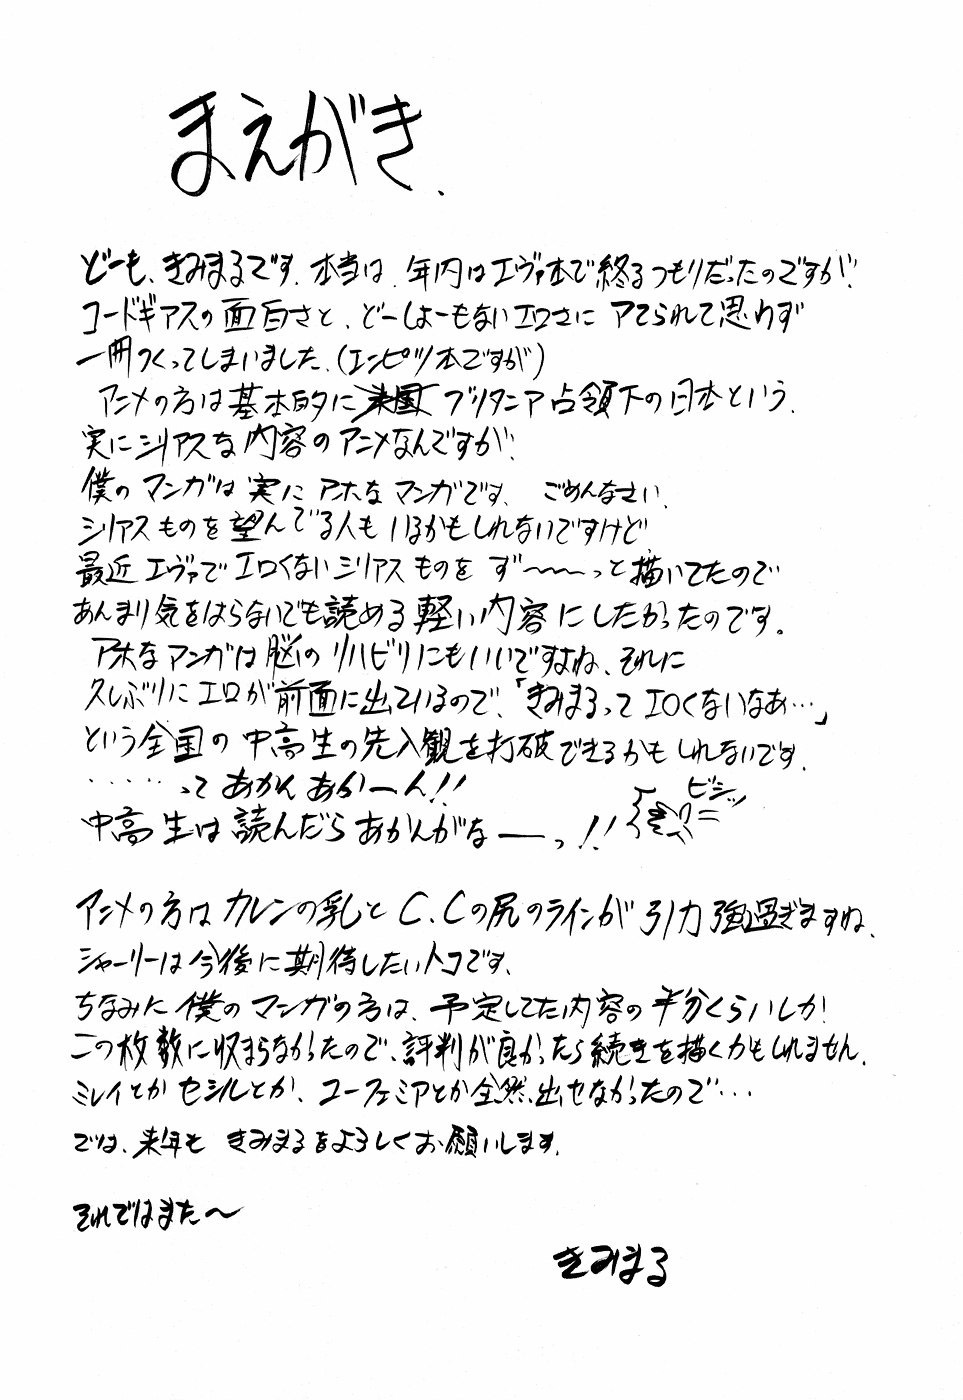 まえがき.
どーも、きみまるです。本当は、年内はエヴァ本で終るつもりだったのですが、
コードギアスの面白さと、どーしよーもないエロさに アてられて思わず
一冊つくってしまいました。(エンピツ本ですが)
アニメの方は基本的に米国ブリタニア占領下の日本という、
実にシリアスな内容のアニメなんですが、
僕のマンガは実にアホなマンガです、ごめんなさい。
シリアスものを望んでる人もいるかもしれないですけど
最近エヴァでエロくないシリアスものを ず〜〜〜っと描いてたので
あんまり気をはらないでも読める軽い内容にしたかったのです。
アホなマンガは脳のリハビリにもいいですよね、それに
久しぶりにエロが前面に出ているので、「きみまるってエロくないなあ…」
という全国の中高生の先入観を打破できるかもしれないです。
……ってあかんあかーん!!
ビシッ
中高生は読んだらあかんがなーっ!!
アニメの方はカレンの乳とC.Cの尻のラインが引力強過ぎますね、
シャーリーは今後に期待したいトコです、
ちなみに僕のマンガの方は、予定してた内容の半分くらいしか
この枚数に収まらなかったので、評判が良かったら続きを描くかもしれません。
ミレイとかセシルとか、ユーフェミアとか全然出せなかったので…
では、来年もきみまるをよろしくお願いします。
それではまた〜
きみまる